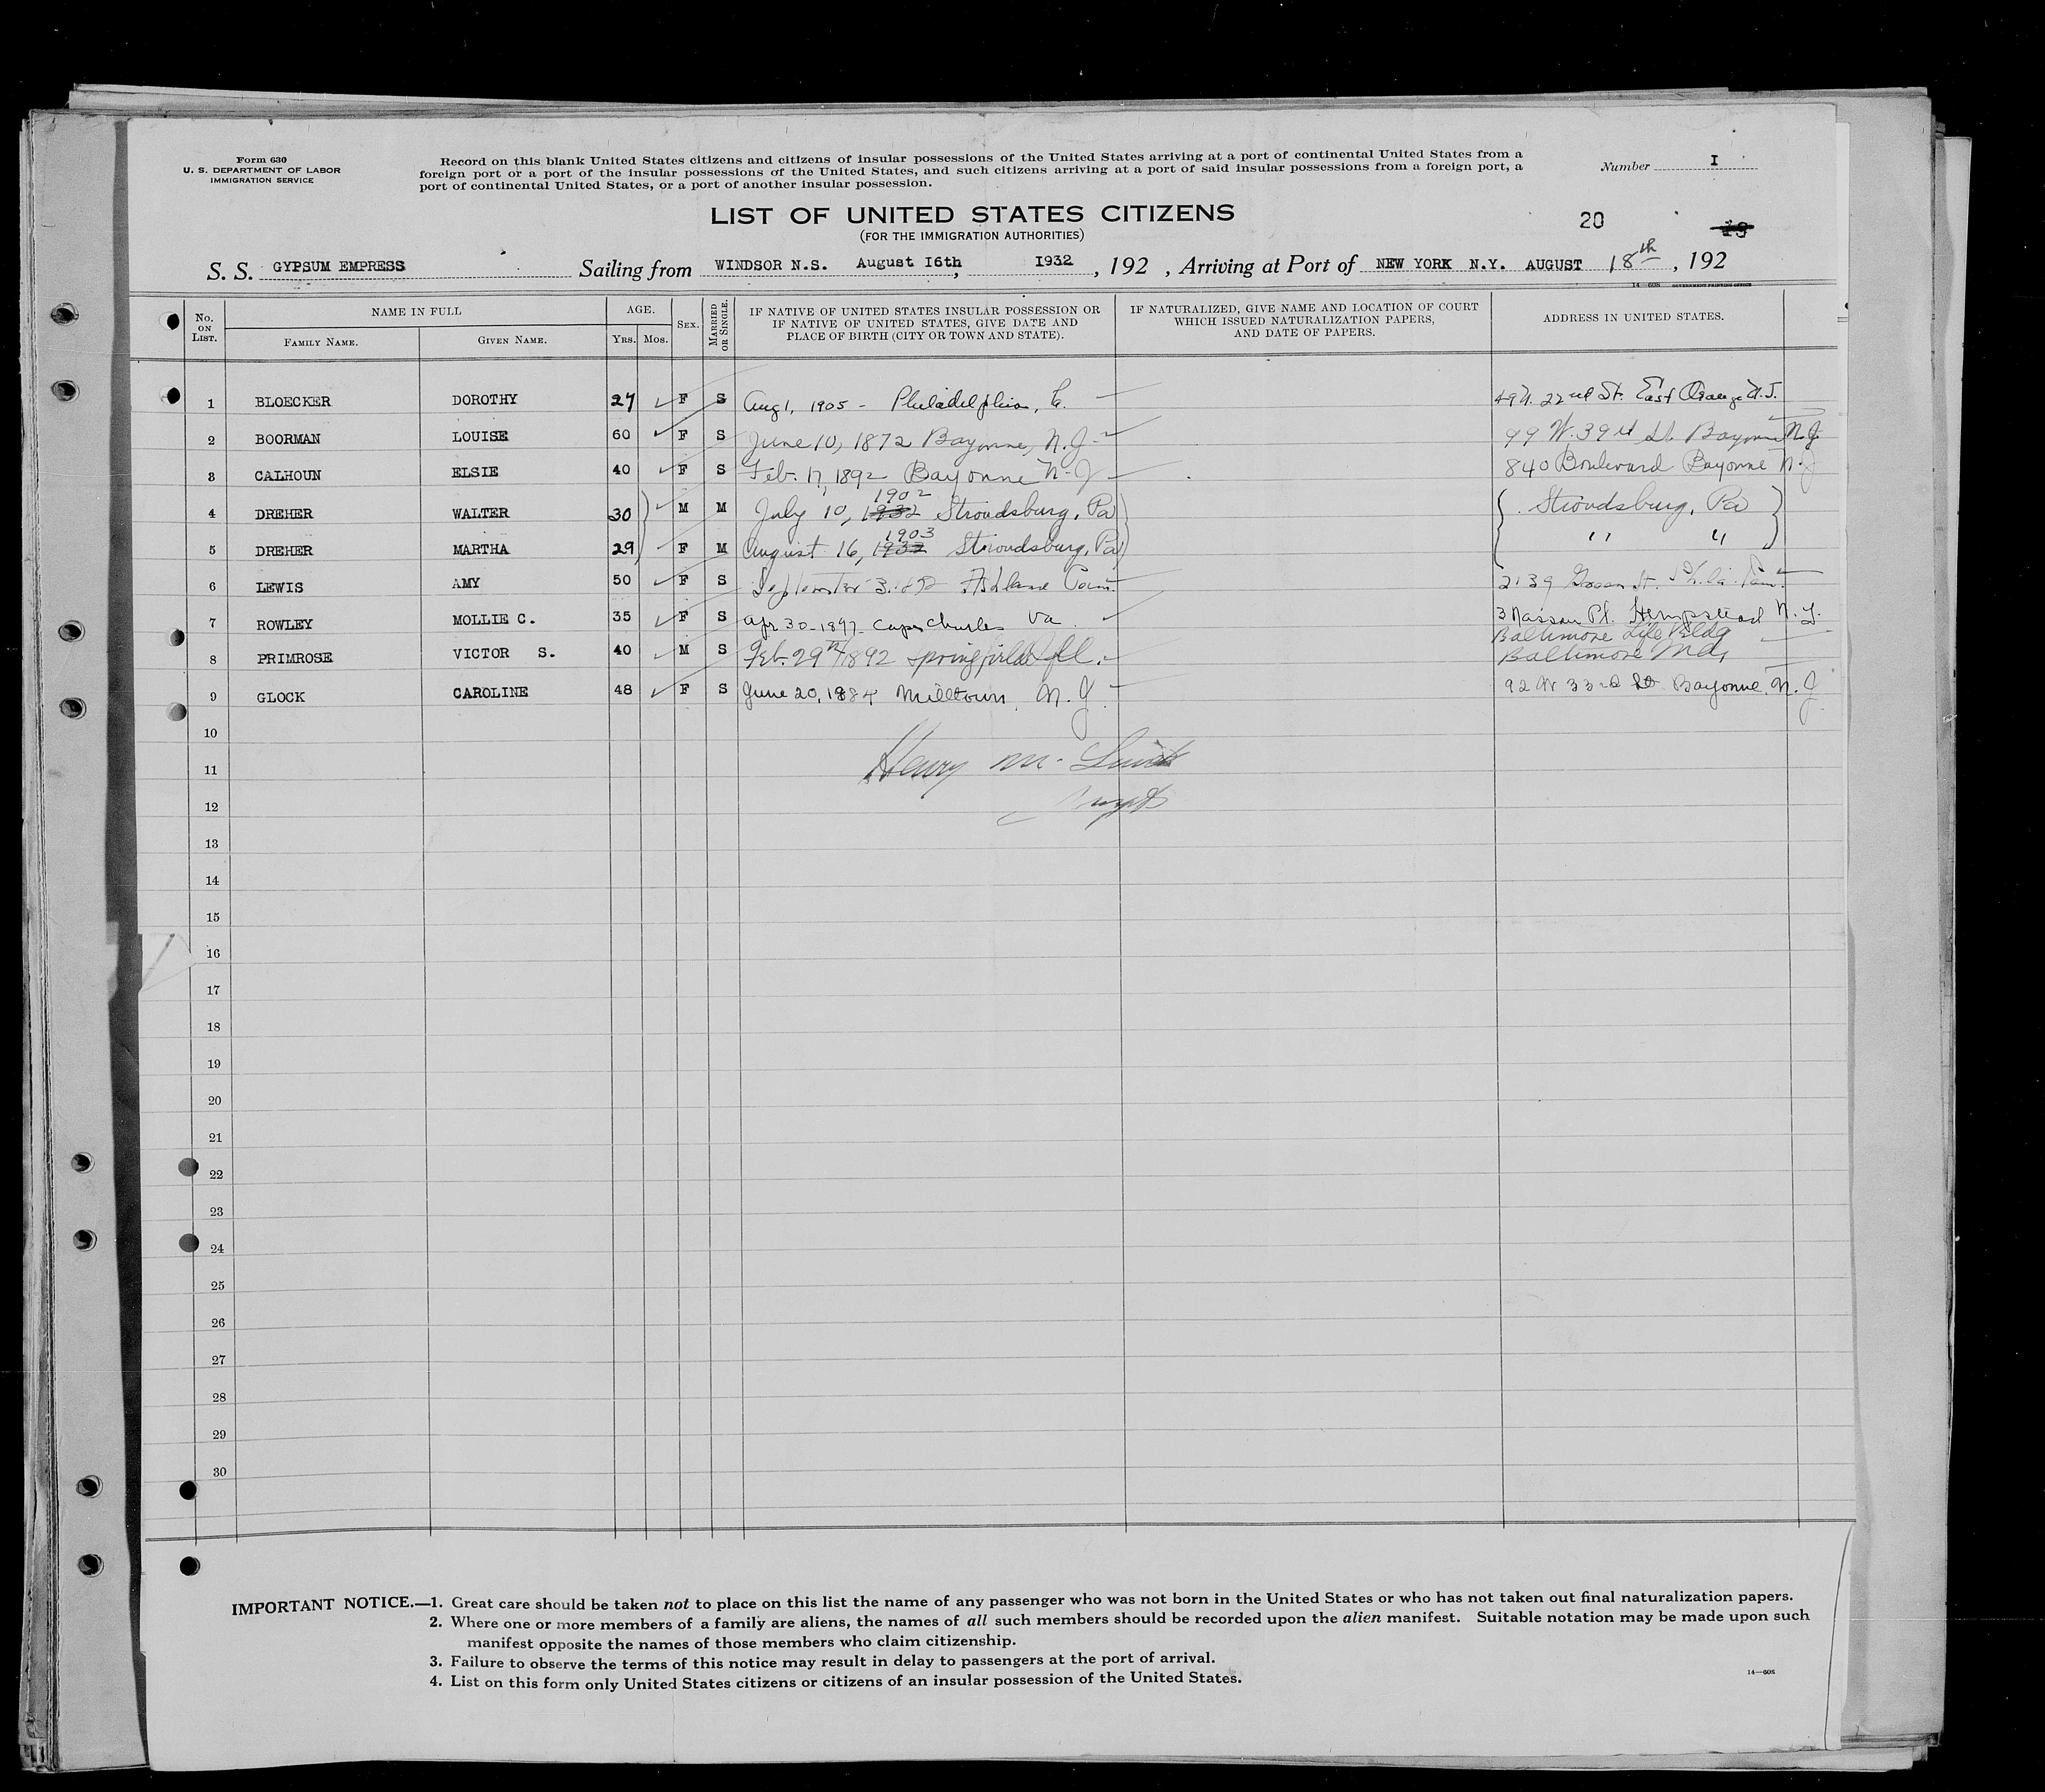 Form 630
U. S. DEPARTMENT OF LABOR
IMMIGRATION SERVICE
Record on this blank United States citizens and citizens of insular possessions of the United States arriving at a port of continental United States from a
foreign port or a port of the insular possessions of the United States, and such citizens arriving at a port of said insular possessions from a foreign port, a
port of continental United States, or a port of another insular possession.
Number I
LIST OF UNITED STATES CITIZENS
(FOR THE IMMIGRATION AUTHORITIES)
20 19
S. S. GYPSUM EMPRESS Sailing from WINDSOR N.S. August I6th, I932, 192 , Arriving at Port of NEW YORK N.Y. AUGUST 18th, 192
14—608 GOVERNMENT PRINTING OFFICE
No. ON LIST. NAME IN FULL FAMILY NAME. GIVEN NAME. AGE. YRS. MOS. SEX. MARRIED OR SINGLE. IF NATIVE OF UNITED STATES INSULAR POSSESSION OR IF NATIVE OF UNITED STATES, GIVE DATE AND PLACE OF BIRTH (CITY OR TOWN AND STATE). IF NATURALIZED, GIVE NAME AND LOCATION OF COURT WHICH ISSUED NATURALIZATION PAPERS, AND DATE OF PAPERS. ADDRESS IN UNITED STATES.
1 BLOECKER DOROTHY 27 F S Aug 1, 1905 - Philadelphia, Pa. 49 N. 22nd St. East Orange N.J.
2 BOORMAN LOUISE 60 F S June 10, 1872 Bayonne, N.J. 99 W. 39th St. Bayonne N.J.
3 CALHOUN ELSIE 40 F S Feb. 17, 1892 Bayonne N.J. 840 Boulevard Bayonne N.J.
4 DREHER WALTER 30 M M July 10, 1932 1902 Stroudsburg, Pa Stroudsburg, Pa
5 DREHER MARTHA 29 F M August 16, 1932 1903 Stroudsburg, Pa " "
6 LEWIS AMY 50 F S September 3. Ashland Penn. 2139 St. Phila. Penn.
7 ROWLEY MOLLIE C. 35 F S Apr 30-1897 Cape Charles Va. 3 Nassau Pl. Hempstead N.Y.
8 PRIMROSE VICTOR S. 40 M S Feb. 29th 1892 Springfield Ill. Baltimore Life Bldg Baltimore Md,
9 GLOCK CAROLINE 48 F S June 20, 1884 Milltown, N.J. 92 W 33rd St Bayonne, N.J.
10
Henry M.
11
12
13
14
15
16
17
18
19
20
21
22
23
24
25
26
27
28
29
30
IMPORTANT NOTICE.—1. Great care should be taken not to place on this list the name of any passenger who was not born in the United States or who has not taken out final naturalization papers.
2. Where one or more members of a family are aliens, the names of all such members should be recorded upon the alien manifest. Suitable notation may be made upon such
manifest opposite the names of those members who claim citizenship.
3. Failure to observe the terms of this notice may result in delay to passengers at the port of arrival.
4. List on this form only United States citizens or citizens of an insular possession of the United States.
14—608